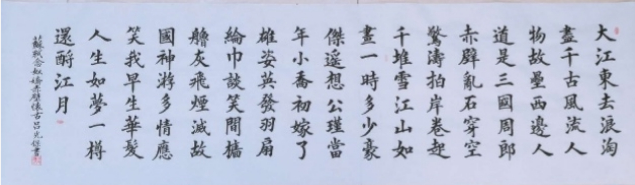 大江東去浪淘
盡千古風流人
物故壘西邊人
道是三國周郎
赤壁亂石穿空
驚濤拍岸卷起
千堆雪江山如
畫一時多少豪
傑遥想公瑾當
年小喬初嫁了
雄姿英發羽扇
綸巾談笑間檣
艪灰飛煙滅故
國神游多情應
笑我早生華髮
人生如夢一樽
還酹江月
蘇軾念奴嬌赤壁懷古呂書